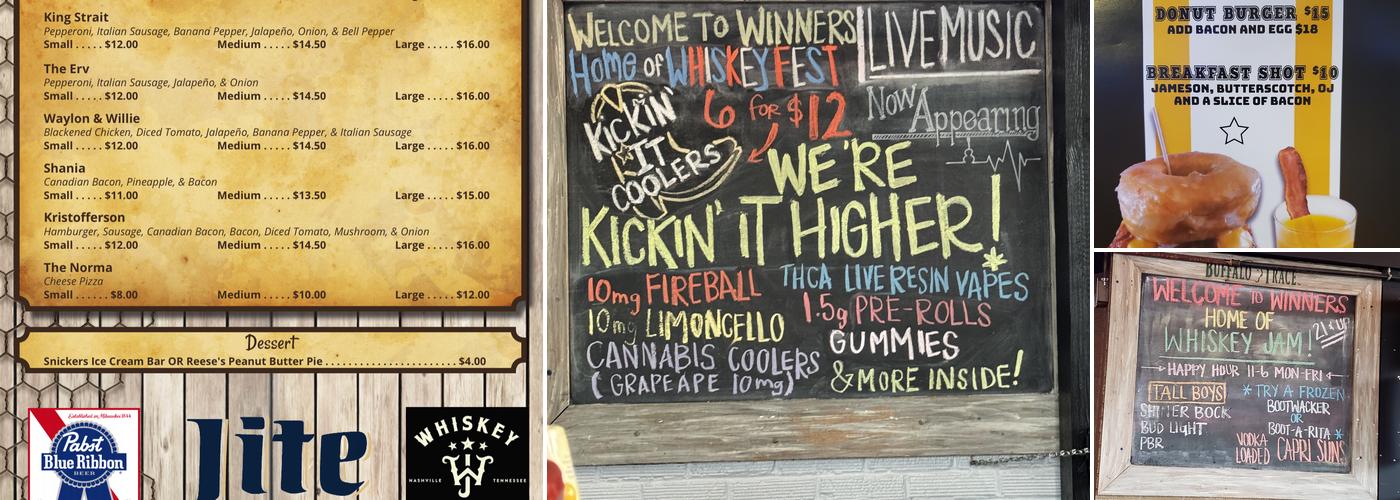 King Strait
Pepperoni, Italian Sausage, Banana Pepper, Jalapeño, Onion, & Bell Pepper
Small . . . . . $12.00 Medium . . . . . $14.50 Large . . . . . $16.00
The Erv
Pepperoni, Italian Sausage, Jalapeño, & Onion
Small . . . . . $12.00 Medium . . . . . $14.50 Large . . . . . $16.00
Waylon & Willie
Blackened Chicken, Diced Tomato, Jalapeño, Banana Pepper, & Italian Sausage
Small . . . . . $12.00 Medium . . . . . $14.50 Large . . . . . $16.00
Shania
Canadian Bacon, Pineapple, & Bacon
Small . . . . . $11.00 Medium . . . . . $13.50 Large . . . . . $15.00
Kristofferson
Hamburger, Sausage, Canadian Bacon, Bacon, Diced Tomato, Mushroom, & Onion
Small . . . . . $12.00 Medium . . . . . $14.50 Large . . . . . $16.00
The Norma
Cheese Pizza
Small . . . . . $8.00 Medium . . . . . $10.00 Large . . . . . $12.00
Dessert
Snickers Ice Cream Bar OR Reese's Peanut Butter Pie . . . . . . . . . . . . . . . . . . . . . . . $4.00
Established in Milwaukee 1844
Pabst
Blue Ribbon
BEER
Lite
WHISKEY
JAM
NASHVILLE TENNESSEE
WELCOME TO WINNERS
HOME OF WHISKEY FEST
LIVE MUSIC
KICKIN'
IT
COOLERS
6 FOR $12
NOW Appearing
WE'RE
KICKIN' IT HIGHER!
10mg FIREBALL
10mg LIMONCELLO
CANNABIS COOLERS
(GRAPE APE 10mg)
THCA LIVE RESIN VAPES
1.5g PRE-ROLLS
GUMMIES
& MORE INSIDE!
DONUT BURGER $15
ADD BACON AND EGG $18
BREAKFAST SHOT $10
JAMESON, BUTTERSCOTCH, OJ
AND A SLICE OF BACON
BUFFALO TRACE
WELCOME TO WINNERS
HOME OF
WHISKEY JAM!
21 & UP
HAPPY HOUR 11-6 MON-FRI
TALL BOYS
SHINER BOCK
BUD LIGHT
PBR
* TRY A FROZEN
BOOTWACKER
OR
BOOT-A-RITA *
VODKA
LOADED CAPRI SUNS